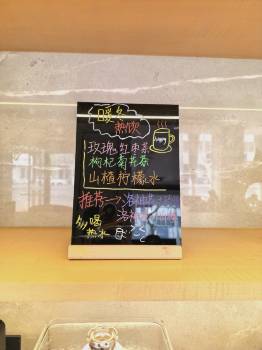 暖冬
热饮
玫瑰红枣茶
枸杞菊花茶
山楂柠檬水
推荐-->洛神
洛神
多喝
热水